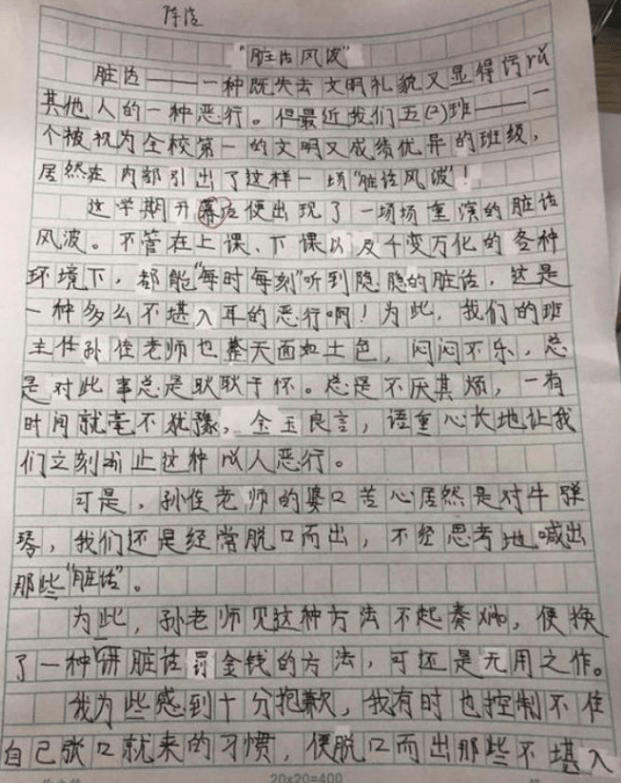 陈洁
“脏话风波”
脏话——一种既失去文明礼貌又显得污
其他人的一种恶行。但最近我们五(2)班——一
个被视为全校第一的文明又成绩优异的班级，
居然在内部引出了这样一场“脏话风波”！
这学期开幕后便出现了一场场重演的脏话
风波。不管在上课、下课以及千变万化的各种
环境下，都能“每时每刻”听到隐隐的脏话，这是
一种多么不堪入耳的恶行啊！为此，我们的班
主任孙佳老师也整天面如土色，闷闷不乐，总
是对此事总是耿耿于怀。总是不厌其烦，一有
时间就毫不犹豫，金玉良言，语重心长地让我
们立刻 止这种 人恶行。
可是，孙佳老师的婆口苦心居然是对牛弹
琴，我们还是经常脱口而出，不经思考地喊出
那些“脏话”。
为此，孙老师见这种方法不起奏效，便换
了一种讲脏话罚金钱的方法，可还是无用之作。
我为些感到十分抱歉，我有时也控制不住
自己张口就来的习惯，便脱口而出那些不堪入
20×20=400